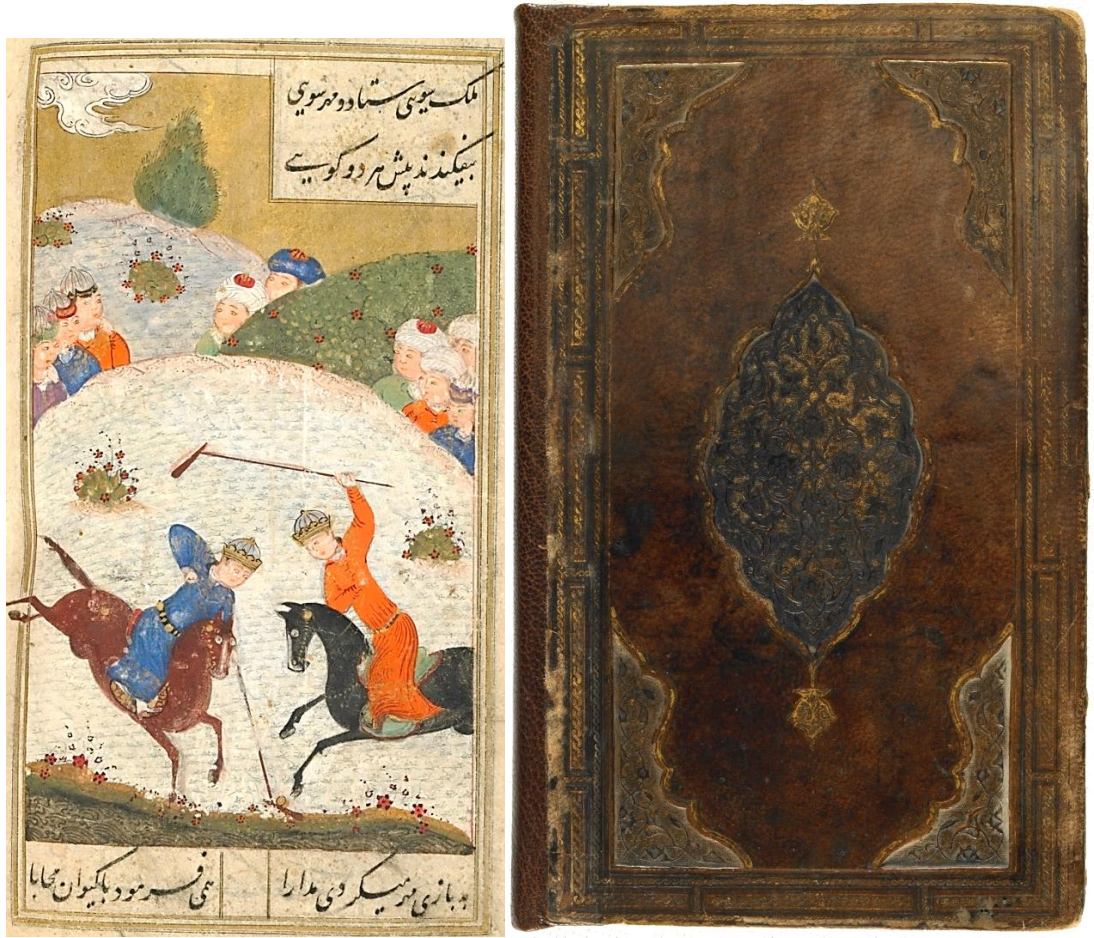 ملک سویی ستاد و مهر سویی
بیفکندند پیش هر دو گویی
به بازی مهر میکردی مدارا
همی فرمود با کیوان محابا